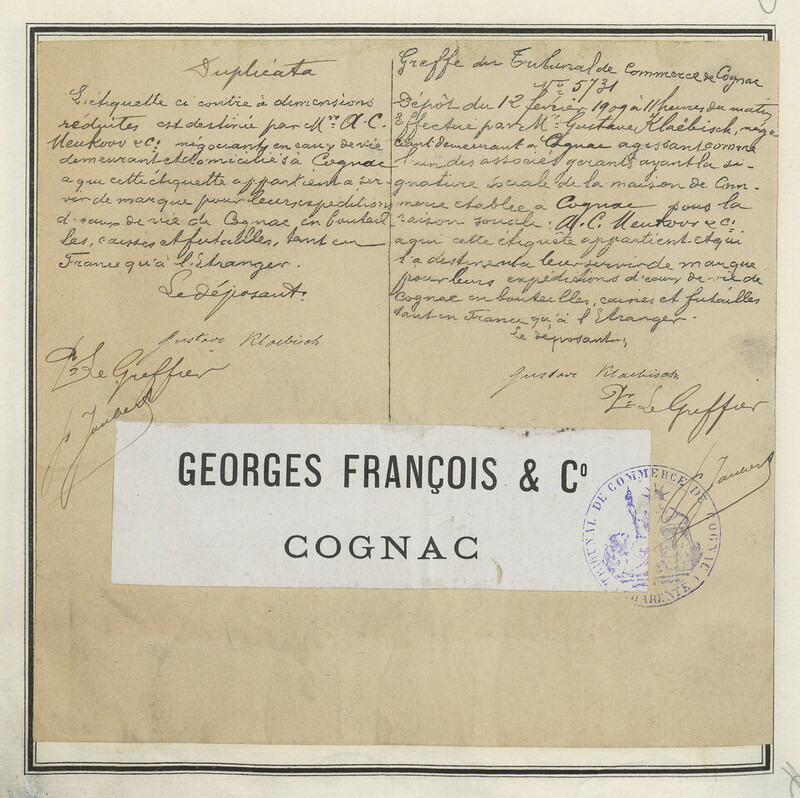 Duplicata
L'étiquette ci contre à dimensions
réduites est destinée par Mrs A. C.
Meukow & Cie négociants en eaux de vie
demeurant et domiciliés à Cognac
a qui cette étiquette appartient à ser-
vir de marque pour leurs expéditions
d'eaux de vie de Cognac en bouteil
les, caisses et futailles, tant en
France qu'à l'Etranger.
Le déposant.
Gustave Klaebisch
Pr Le Greffier
Jaubert
Greffe du Tribunal de Commerce de Cognac
No 5731
Dépôt du 12 février 1909 à 11 heures du matin
Effectué par Mr Gustave Klaëbisch, négo
ciant demeurant à Cognac agissant comme
l'un des associés gérants ayant la si-
gnature sociale de la maison de Com-
merie etablée à Cognac sous la
raison sociale: A. C. Meukow & Cie
a qui cette étiquête appartient et qui
l'a destine a leur servir de marque
pour leurs expéditions d'eaux de vie de
Cognac en bouteilles, caisses et futailles
tant en France qu'à l'Etranger.
Le déposant,
Gustave Klaebisch
Pr Le Greffier
Jaubert
GEORGES FRANÇOIS & Co
COGNAC
TRIBUNAL DE COMMERCE DE COGNAC
CHARENTE